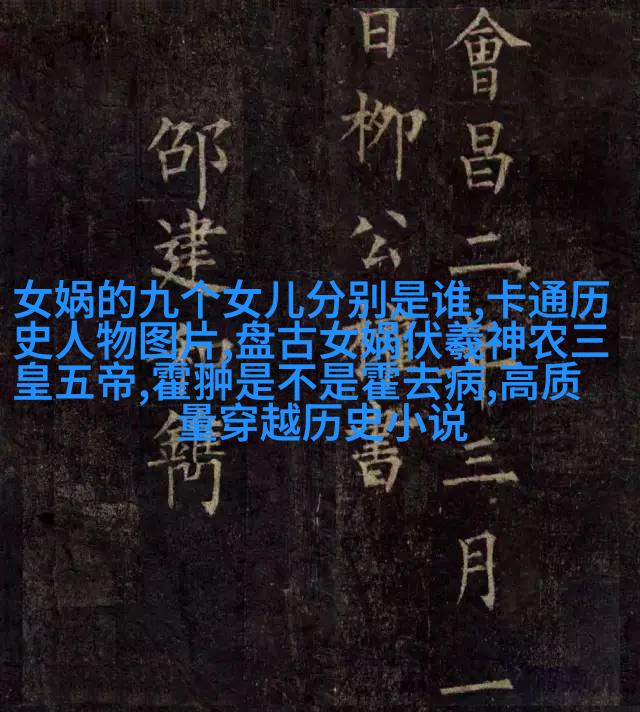 會昌二年三月一
日柳公權書
邵建鐫
女娲的九个女儿分别是谁,卡通历
史人物图片,盘古女娲伏羲神农三
皇五帝,霍翀是不是霍去病,高质
量穿越历史小说